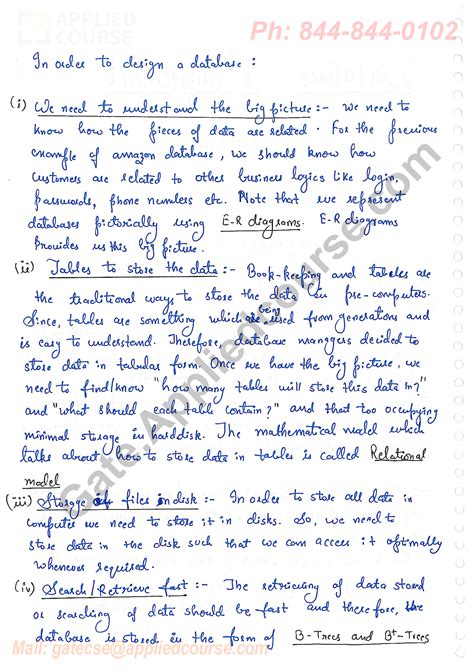 APPLIED
COURSE
Ph: 844-844-0102
In order to design a database :
(i) We need to understand the big picture :- We need to
know how the pieces of data are related. For the previous
example of amazon database, we should know how
customers are related to other business logics like login,
passwords, phone numbers etc. Note that we represent
databases pictorially using E-R diagrams. E-R diagrams
provides us this big picture.
(ii) Tables to store the data :- Book-keeping and tables are
the traditional ways to store the data in pre-computers.
Since, tables are something which is being used from generations and
is easy to understand. Therefore, database managers decided to
store data in tabular form. Once we have the big picture, we
need to find/know "how many tables will store this data in?"
and "what should each table contain?" and that too occupying
minimal storage in harddisk. The mathematical model which
talks about how to store data in tables is called Relational
model
(iii) Storage of files in disk :- In order to store all data in
computer we need to store it in disks. So, we need to
store data in the disk such that we can access it optimally
whenever required.
(iv) Search/Retrieve fast :- The retrieving of data stored
or searching of data should be fast and therefore, the
database is stored in the form of B-Trees and B+-Trees
Gate.Appliedcourse.com
Mail: gatecse@appliedcourse.com